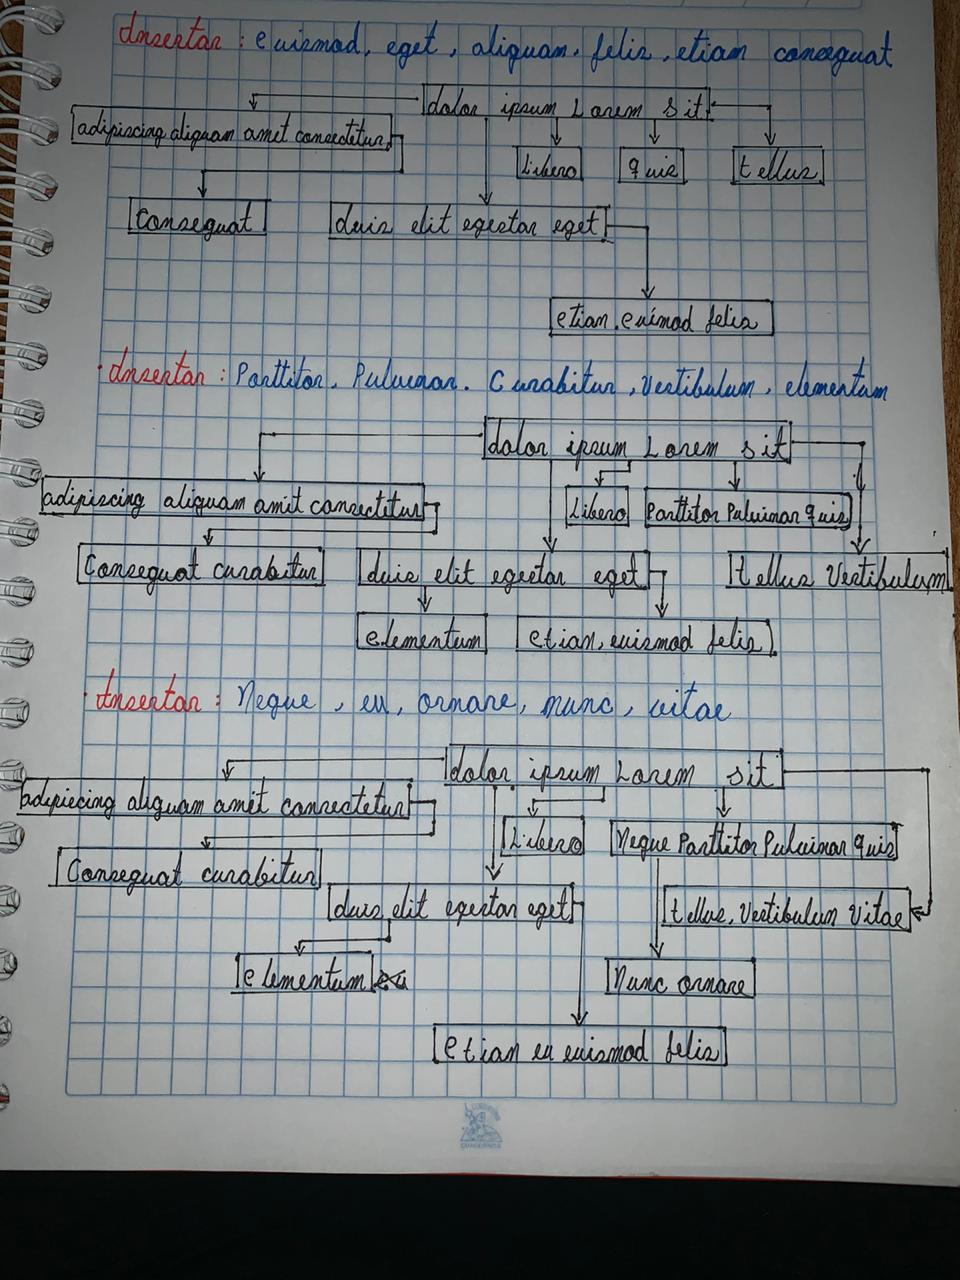 Insertar: euismod, eget, aliquam, felis, etiam consequat
dolor ipsum Lorem sit
adipiscing aliquam amet consectetur
Libero quis tellus
Consequat duis elit egestar eget
etian euimod felis
Insertar: Porttitor, Pulvinar. Curabitur, Vestibulum, elementum
dolor ipsum Lorem sit
adipiscing aliquam amit consectetur Libero Porttitor Pulvinar quis
Consequat curabitur duis elit egestar eget tellus Vestibulum
elementum etian, euismod felis
Insertar: Neque, eu, ornare, nunc, vitae
dolor ipsum Lorem sit
adipiscing aliquam amit consectetur
Libero Neque Porttitor Pulvinar quis
Consequat curabitur
duis elit egestar eget tellus, Vestibulum Vitae
elementum Nunc ornare
etian eu euismod felis